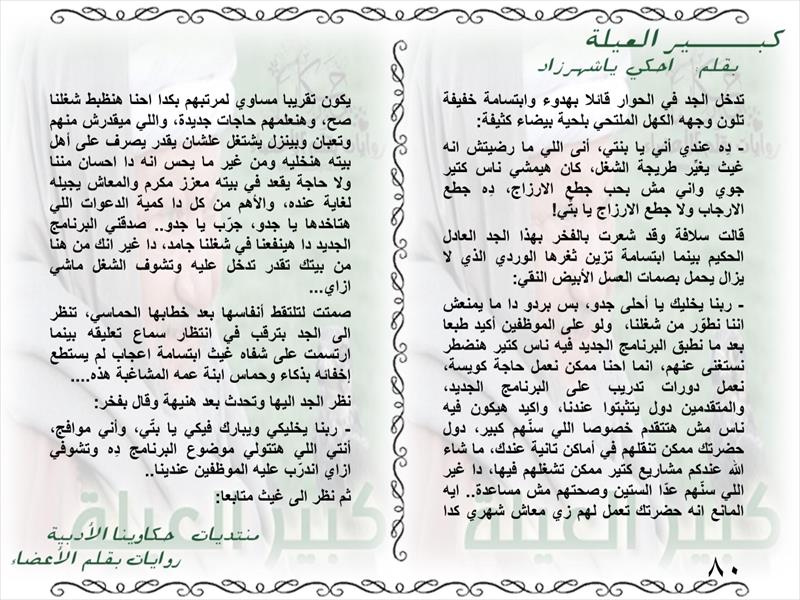 كبــــــير العيلة
بقلم احكي ياشهرزاد
تدخل الجد في الحوار قائلا بهدوء وابتسامة خفيفة
تلون وجهه الكهل الملتحي بلحية بيضاء كثيفة:
- دِه عندي أني يا بنتي، أنى اللي ما رضيتش انه
غيث يغيّر طريجة الشغل، كان هيمشي ناس كتير
جوي واني مش بحب جطع الارزاج، دِه جطع
الارجاب ولا جطع الارزاج يا بتّي!
قالت سلافة وقد شعرت بالفخر بهذا الجد العادل
الحكيم بينما ابتسامة تزين ثغرها الوردي الذي لا
يزال يحمل بصمات العسل الأبيض النقي:
- ربنا يخليك يا أحلى جدو، بس بردو دا ما يمنعش
اننا نطوّر من شغلنا، ولو على الموظفين أكيد طبعا
بعد ما نطبق البرنامج الجديد فيه ناس كتير هنضطر
نستغنى عنهم، انما احنا ممكن نعمل حاجة كويسة،
نعمل دورات تدريب على البرنامج الجديد،
والمتقدمين دول يتثبتوا عندنا، واكيد هيكون فيه
ناس مش هتتقدم خصوصا اللي سنّهم كبير، دول
حضرتك ممكن تنقلهم في أماكن تانية عندك، ما شاء
الله عندكم مشاريع كتير ممكن تشغلهم فيها، دا غير
اللي سنّهم عدّا الستين وصحتهم مش مساعدة.. ايه
المانع انه حضرتك تعمل لهم زي معاش شهري كدا
يكون تقريبا مساوي لمرتبهم بكدا احنا هنظبط شغلنا
صح، وهنعلمهم حاجات جديدة، واللي ميقدرش منهم
وتعبان وبينزل يشتغل علشان يقدر يصرف على أهل
بيته هنخليه ومن غير ما يحس انه دا احسان مننا
ولا حاجة يقعد في بيته معزز مكرم والمعاش يجيله
لغاية عنده، والأهم من كل دا كمية الدعوات اللي
هتاخدها يا جدو، جرّب يا جدو.. صدقني البرنامج
الجديد دا هينفعنا في شغلنا جامد، دا غير انك من هنا
من بيتك تقدر تدخل عليه وتشوف الشغل ماشي
ازاي...
صمتت لتلتقط أنفاسها بعد خطابها الحماسي، تنظر
الى الجد بترقب في انتظار سماع تعليقه بينما
ارتسمت على شفاه غيث ابتسامة اعجاب لم يستطع
إخفائه بذكاء وحماس ابنة عمه المشاغبة هذه....
نظر الجد اليها وتحدث بعد هنيهة وقال بفخر:
- ربنا يخليكي ويبارك فيكي يا بتّي، وأني موافج،
أنتي اللي هتتولي موضوع البرنامج دِه وتشوفي
ازاي اندرّب عليه الموظفين عندينا..
ثم نظر الى غيث متابعا:
كبير العيلة
كبير العيلة
منتديات حكاوينا الأدبية
روايات بقلم الأعضاء
٨٠